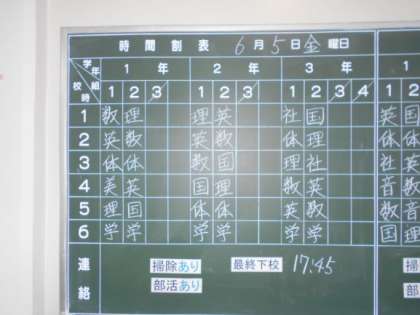 時間割表 6月5日金曜日
学年 1年 2年 3年
校時 組 1 2 3 1 2 3 1 2 3 4 1 2
1 数 理 理 英 社 国 英 国
2 英 数 英 数 体 理 体
3 体 体 数 国 理 社 英 社
4 美 英 国 理 数 英 音 数
5 理 国 体 体 英 数 数 音
6 学 学 学 学 学 学 国 理
連絡 掃除あり 最終下校 17:45
部活あり 部